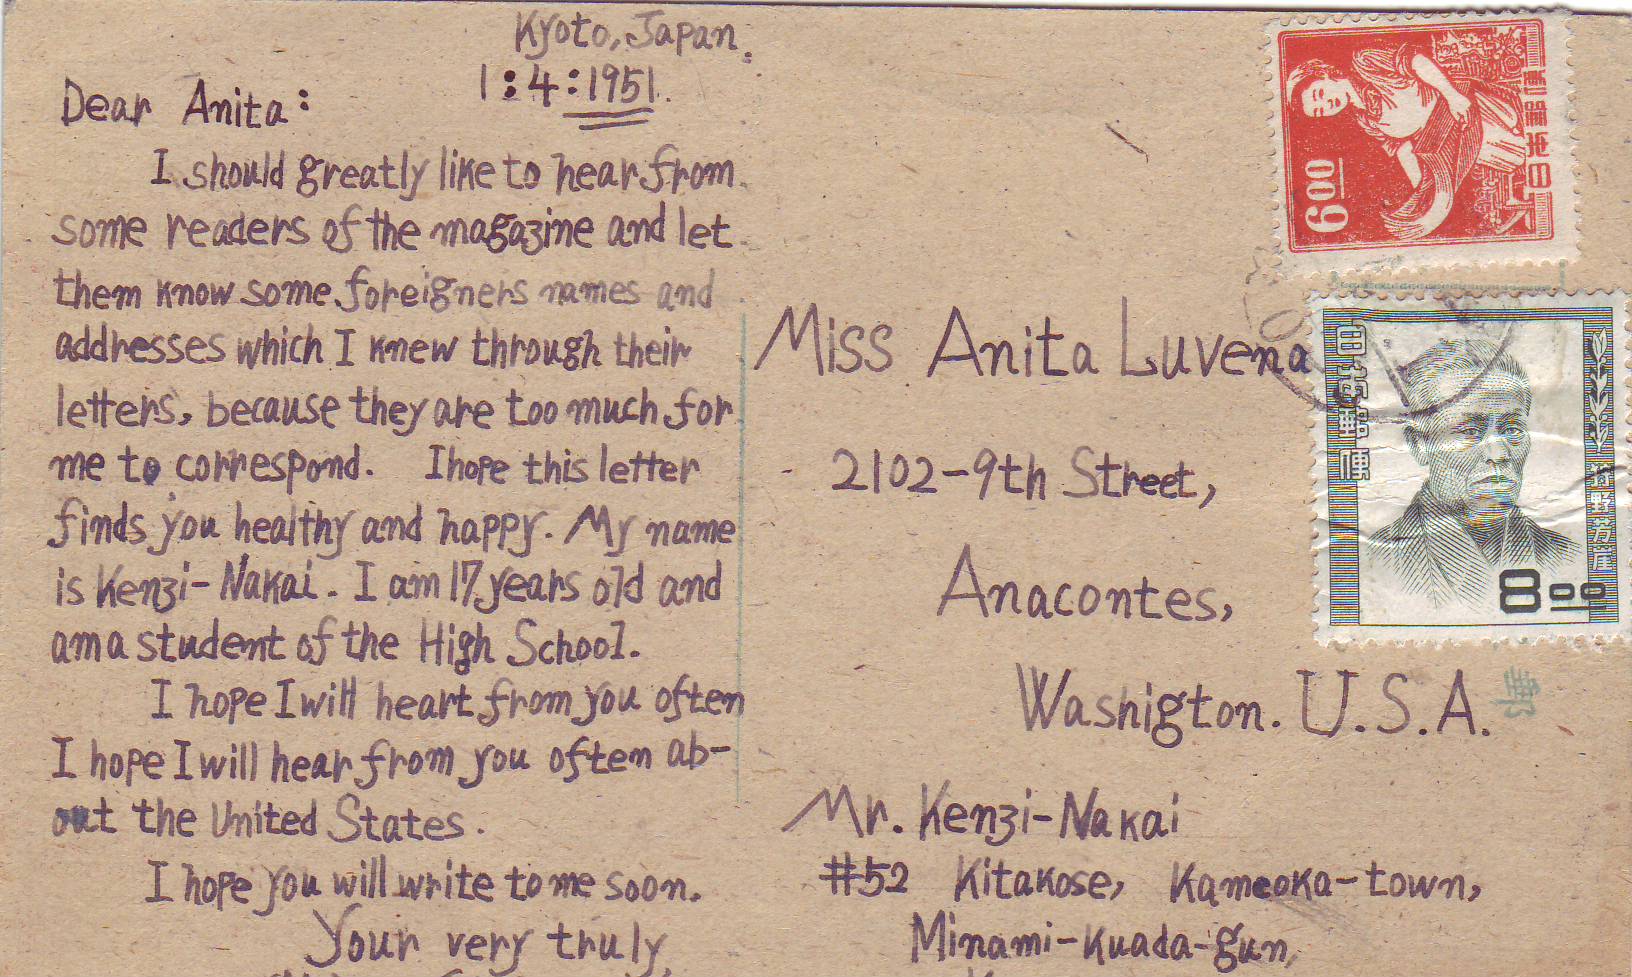 Kyoto, Japan.
1:4:1951.
Dear Anita:
I should greatly like to hear from
some readers of the magazine and let
them know some foreigners names and
addresses which I knew through their
letters, because they are too much for
me to correspond. I hope this letter
finds you healthy and happy. My name
is Kenzi-Nakai. I am 17 years old and
am a student of the High School.
I hope I will heart from you often
I hope I will hear from you often ab-
out the United States.
I hope you will write to me soon.
Your very truly,
Miss Anita Luvena
2102-9th Street,
Anacontes,
Washigton. U.S.A.
Mr. Kenzi-Nakai
#52 Kitakose, Kameoka-town,
Minami-Kuada-gun,
日本郵便
6.00
日本郵便
狩野芳崖
8.00